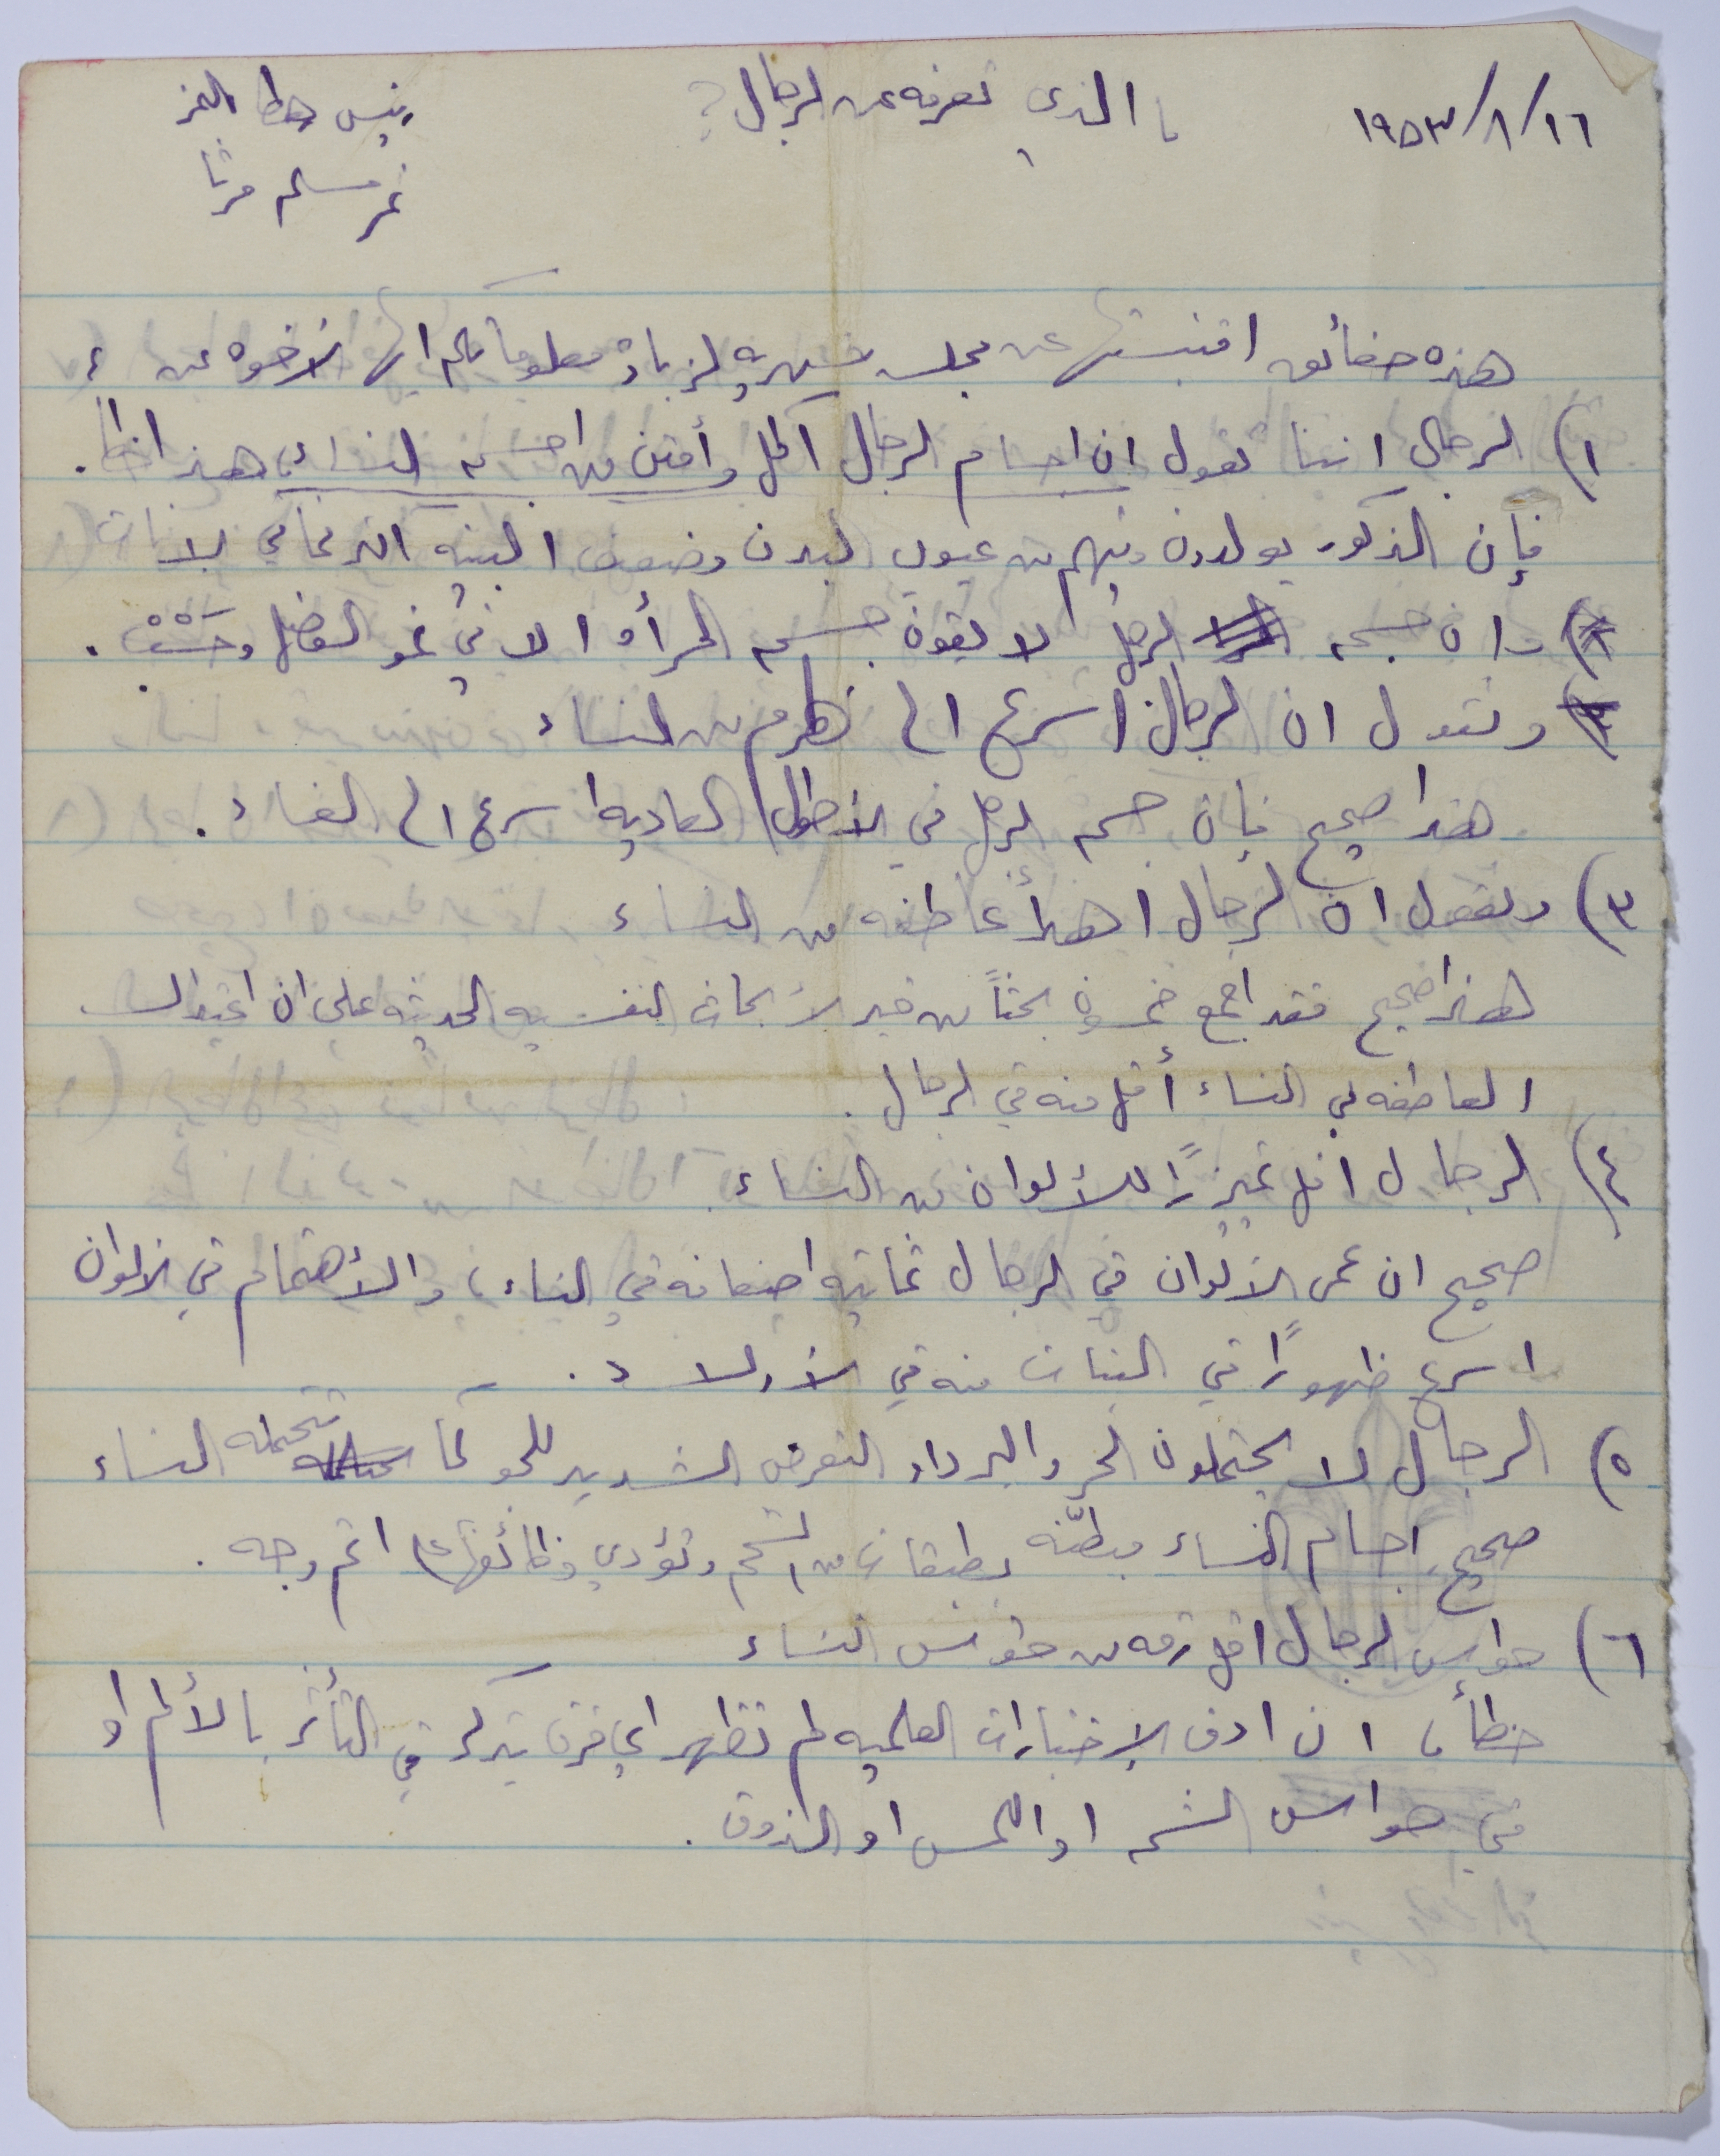 ١٩٥٣/٨/١٦ ما الذي تعرفه عن الرجال؟ رئيس
نمر مسلم مرثا
هذه حقائق اقتبستها عن مجلة شهرية لزيادة معلوماتكم ايها الأخوة عن ؛
١) الرجال اننا نقول ان اجسام الرجال اكمل وأمتن من اجسام النساء، هذا خطأ.
فإن الذكور يولدون وفيهم من عيوب البدن وضعف البنيه اكثر مما في الاناث
وان جسم الرجل لا يفوق جسم المرأة الا في نمو العضل وحسب.
ونقول ان الرجال اسرع الى الهرم من النساء
هذا صحيح فإن جسم الرجل في الأحوال العاديه اسرع الى الفساد.
٣) ونقول ان الرجال اهدأ عاطفه من النساء
هذا صحيح فقد اجمع خمسون بحثاً من خير الأبحاث النفسيه الحديثه على ان اعتدال
العاطفه في النساء أقل منه في الرجال.
٤) الرجال اقل تمييزًا للألوان من النساء.
صحيح ان عمى الألوان في الرجال ثمانية اضعافه في النساء، والأهتمام في الألوان
اسرع ظهورًا في البنات منه في الأولاد.
٥) الرجال لا يحتملون الحر والبرد او التعرض الشديد للجو كما تتحمله النساء
صحيح، اجسام النساء مبطّنه بطبقات من الشحم وتؤدي وظائفها على اتم وجه.
٦) حواس الرجال اقل رقه من حواس النساء
خطأ، ان ادق الإختبارات العلميه لم تظهر اي فرق يذكر في التأثر بالألم او
في حواس الشم او اللمس او الذوق.